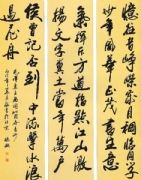 憶往昔崢嶸歲月稠恰同學
少年風華正茂書生意
氣揮斥方遒指點江山激
揚文字糞土當年萬戶
侯曾記否到中流擊水浪
遏飛舟